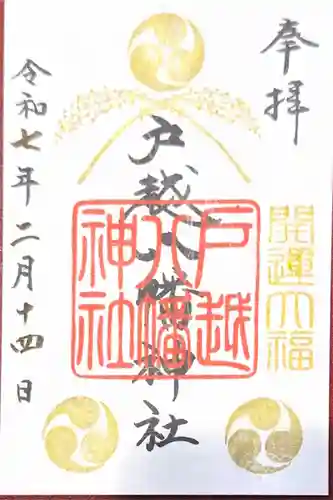 奉拝
開運大福
戸越八幡神社
戸越八幡神社
令和七年二月十四日